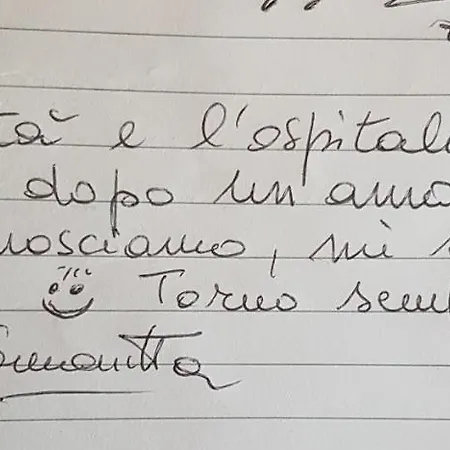 tà e l'ospital
dopo un'anno
nosciamo, mi s
Torno sem